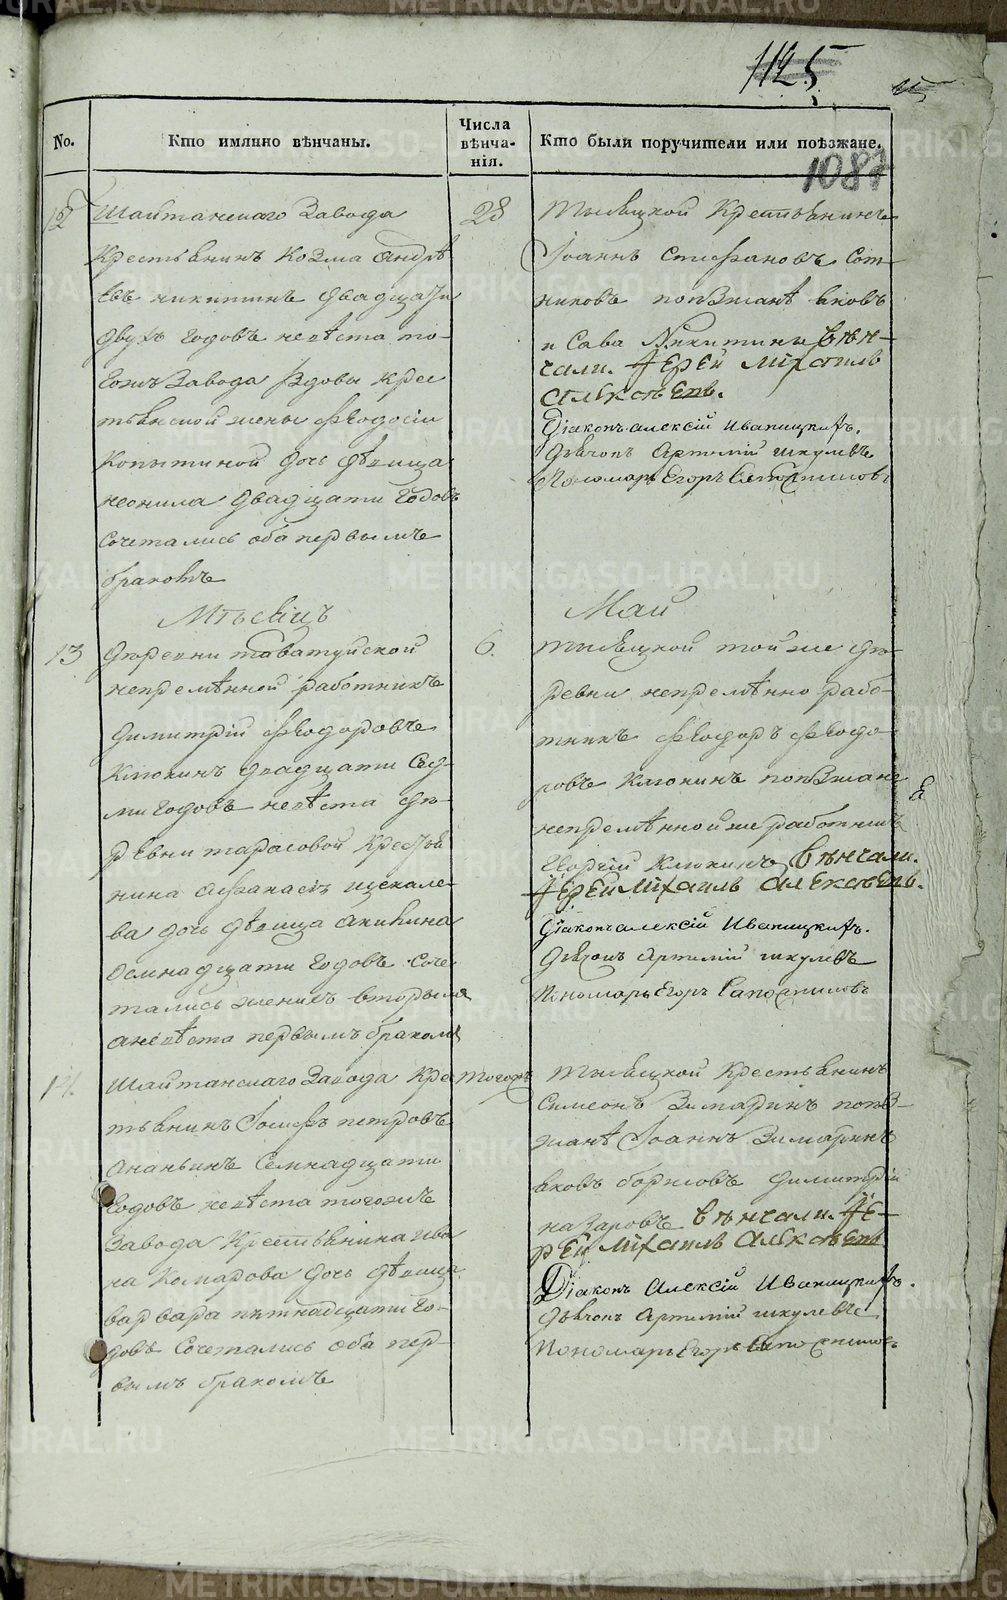 1125
1087
No.
Кто имянно вѣнчаны.
Числа вѣнча-нія.
Кто были поручители или поѣзжане.
12
Шайтанскаго Завода
крестьянинъ Козма Андрѣ
евъ никитинъ двадцати
двухъ годовъ невѣста то-
гожъ Завода вдовы крес
тьянской жены Феодосіи
Копытиной дочь девица
неонила двадцати годовъ
сочетались оба первымъ
бракомъ
28
тысяцкой крестьянинъ
Іоаннъ Стефановъ Сот-
никовъ поѣзжанѣ яковъ
и Сава Никитины вѣн-
чали. Іерей Михаилъ
Алексѣевъ.
Діаконъ алексій Иваницкій.
Дьячокъ Артемій шкулевъ
Пономарь Егоръ Сапоспиловъ
Мѣсяцъ
Май
13
деревни таватуйской
непремѣнной работникъ
Димитрій Феодоровъ
Клюкинъ двадцати сѣд-
ми годовъ невѣста де-
ревни тарасовой крестья
нина Афанасія щекале-
ва дочь девица акилина
осмнадцати годовъ соче-
тались женихъ вторымъ
а невѣста первымъ бракомъ
6.
тысяцкой той же де-
ревни непремѣнно рабо-
тникъ Феодоръ Феодо-
ровъ Клюкинъ поѣзжане
непремѣнной же работникъ
Георгій Клюкинъ вѣнчали.
Іерей Михаилъ Алексѣевъ.
Діаконъ алексій Иваницкій.
Дьячокъ Артемій шкулевъ
Пономарь Егоръ Сапоспиловъ
14.
Шайтанскаго Завода Крес
тьянинъ Іосифъ петровъ
Ананьинъ Семнадцати
годовъ невѣста тогожъ
Завода Крестьянина ива
на Комарова дочь девица
варвара пятнадцати го-
довъ Сочетались оба пер-
вымъ бракомъ
тогожъ
тысяцкой Крестьянинъ
Симеонъ Зимаринъ поѣз-
жанѣ Іоаннъ Зимаринъ
яковъ борисовъ димитрій
назаровъ вѣнчали. Іе-
рей Михаилъ Алексѣевъ
Діаконъ Алексій Иваницкій.
Дьячокъ Артемій шкулевъ
Пономарь Егоръ Сапоспиловъ
METRIKI.GASO-URAL.RU